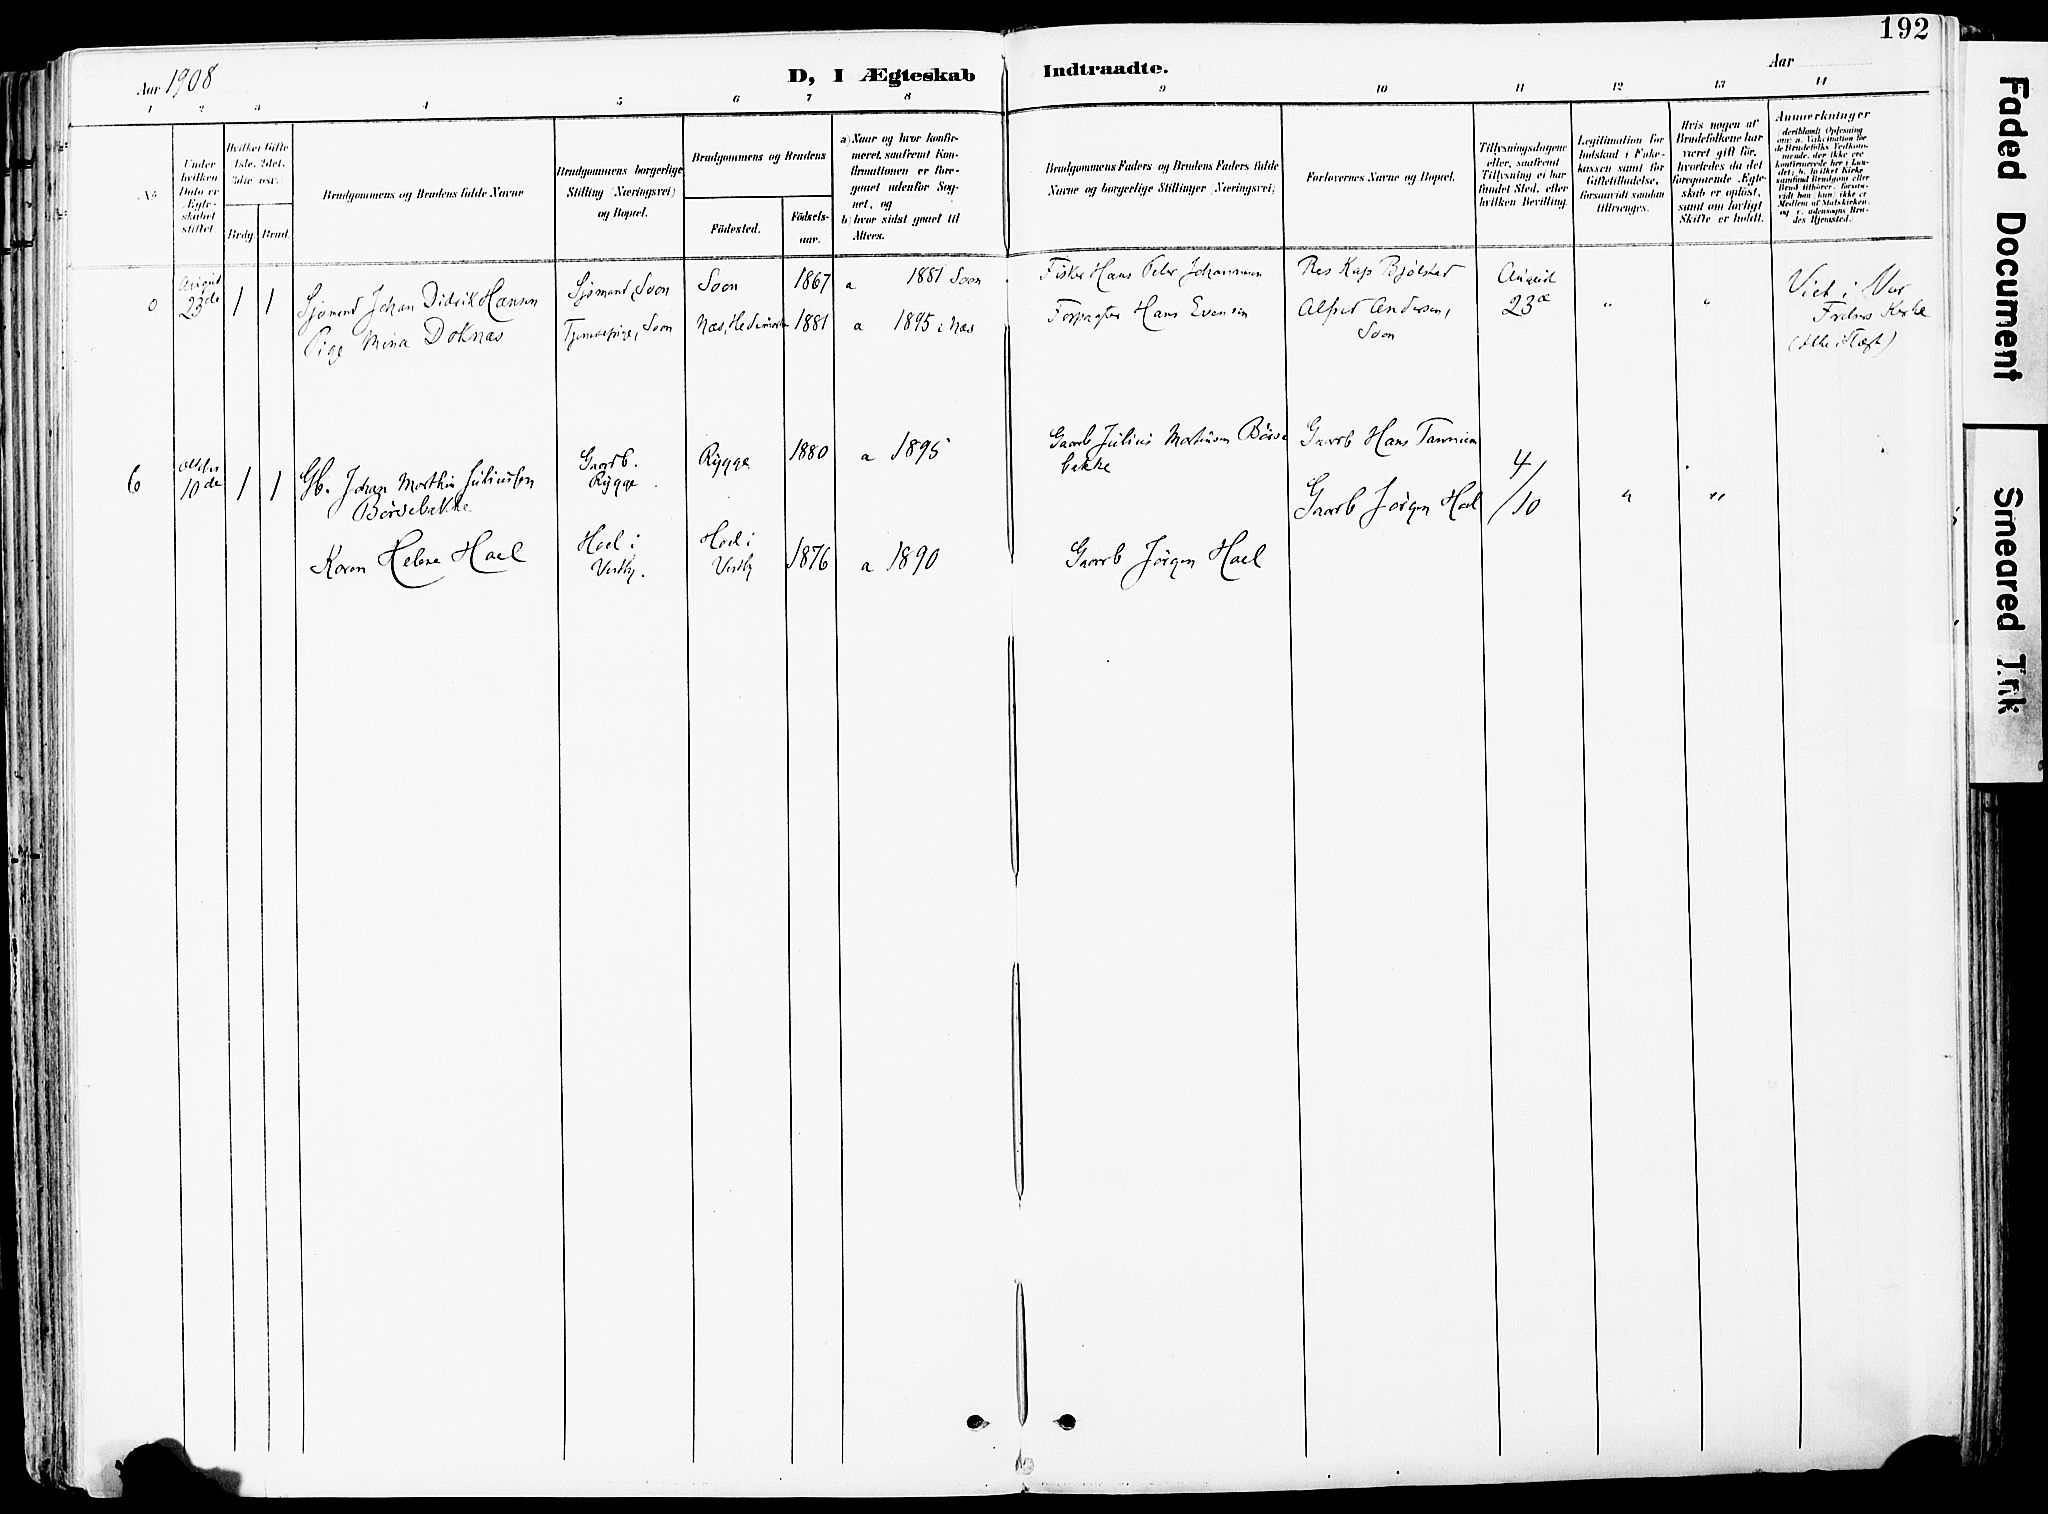 192
Aar 1908
D, I Ægteskab Indtraadte.
Aar
1 2 3 4 5 6 7 8 9 10 11 12 13 14
No
Under hvilken Dato er Ægteskabet stiftet
Hvilket Gifte 1ste, 2det, 3die osv.
Brdg. Brud.
Brudgommens og Brudens fulde Navne
Brudgommens borgerlige Stilling (Næringsvei) og Bopæl.
Brudgommens og Brudens
Födested.
Födsels-aar.
a) Naar og hvor konfirmeret, saafremt Konfirmationen er foregaaet udenfor Sognet, og
b) hvor sidst gaaet til Alters.
Brudgommens Faders og Brudens Faders fulde Navne og borgerlige Stillinger (Næringsvei)
Forlovernes Navne og Bopæl.
Tillysningsdagene eller, saafremt Tillysning ei har fundet Sted, efter hvilken Bevilling.
Legitimation for Indskud i Enkekassen samt for Giftetilladelse, forsaavidt saadan tiltrænges.
Hvis nogen af Brudefolkene har været gift för, hvorledes da det foregaaende Ægteskab er oplöst, samt om lovligt Skifte er holdt.
Anmærkninger
August 23de 1 1 Sjømand Johan Didrik Hansen Sjømand, Soon Soon 1867 a 1881 Soon Fisker Hans Peter Johannesen Res Kap Bjølstad August 23de " " Viet i Vor
Pige Mina Doknæs Tjenestepige, Soon Næs, Hedemarken 1881 a 1895 i Næs Forpagter Hans Evensen Alfred Andersen, Soon Frelsers Kirke
6 Oktober 10de 1 1 Gb. Johan Marthin Juliussen Børsebakke Gaardb. Rygge Rygge 1880 a 1895 Gaardb Julius Martinsen Børsebakke Gaardb Hans
Gaardb Jørgen Hoel 4/10 " "
Karen Helene Hoel Hoel i Vestby. Hoel i Vestby 1876 a 1890 Gaardb Jørgen Hoel
Faded Document
Smeared Ink